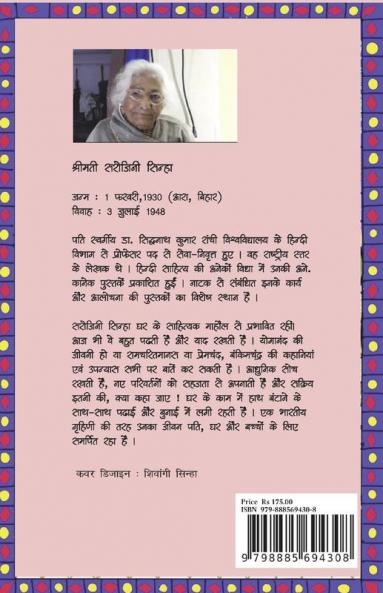 श्रीमती सरोजिनी सिन्हा
जन्म : 1 फरवरी,1930 (आरा, बिहार)
विवाह : 3 जुलाई 1948
पति स्वर्गीय डा. सिद्धनाथ कुमार रांची विश्वविद्यालय के हिन्दी
विभाग से प्रोफेसर पद से सेवा-निवृत्त हुए । वह राष्ट्रीय स्तर
के लेखक थे । हिन्दी साहित्य की अनेकों विद्या में उनकी अने-
कानेक पुस्तकें प्रकाशित हुईं । नाटक से संबंधित इनके कार्य
और आलोचना की पुस्तकों का विशेष स्थान है ।
सरोजिनी सिन्हा घर के साहित्यक माहौल से प्रभावित रहीं।
आज भी वे बहुत पढती है और याद रखती है । योगानंद की
जीवनी हो या रामचरितमानस या प्रेमचंद, बंकिमचंद्र की कहानियां
एवं उपन्यास सभी पर बातें कर सकती है । आधुनिक सोच
रखती है, नए परिवर्तनों को सहजता से अपनाती है और सक्रिय
इतनी की, क्या कहा जाए ! घर के काम में हाथ बंटाने के
साथ-साथ पढाई और बुनाई में लगी रहती है । एक भारतीय
गृहिणी की तरह उनका जीवन पति, घर और बच्चों के लिए
समर्पित रहा है ।
कवर डिजाइन : शिवांगी सिन्हा
Price Rs 175.00
ISBN 979-888569430-8
9 798885 694308